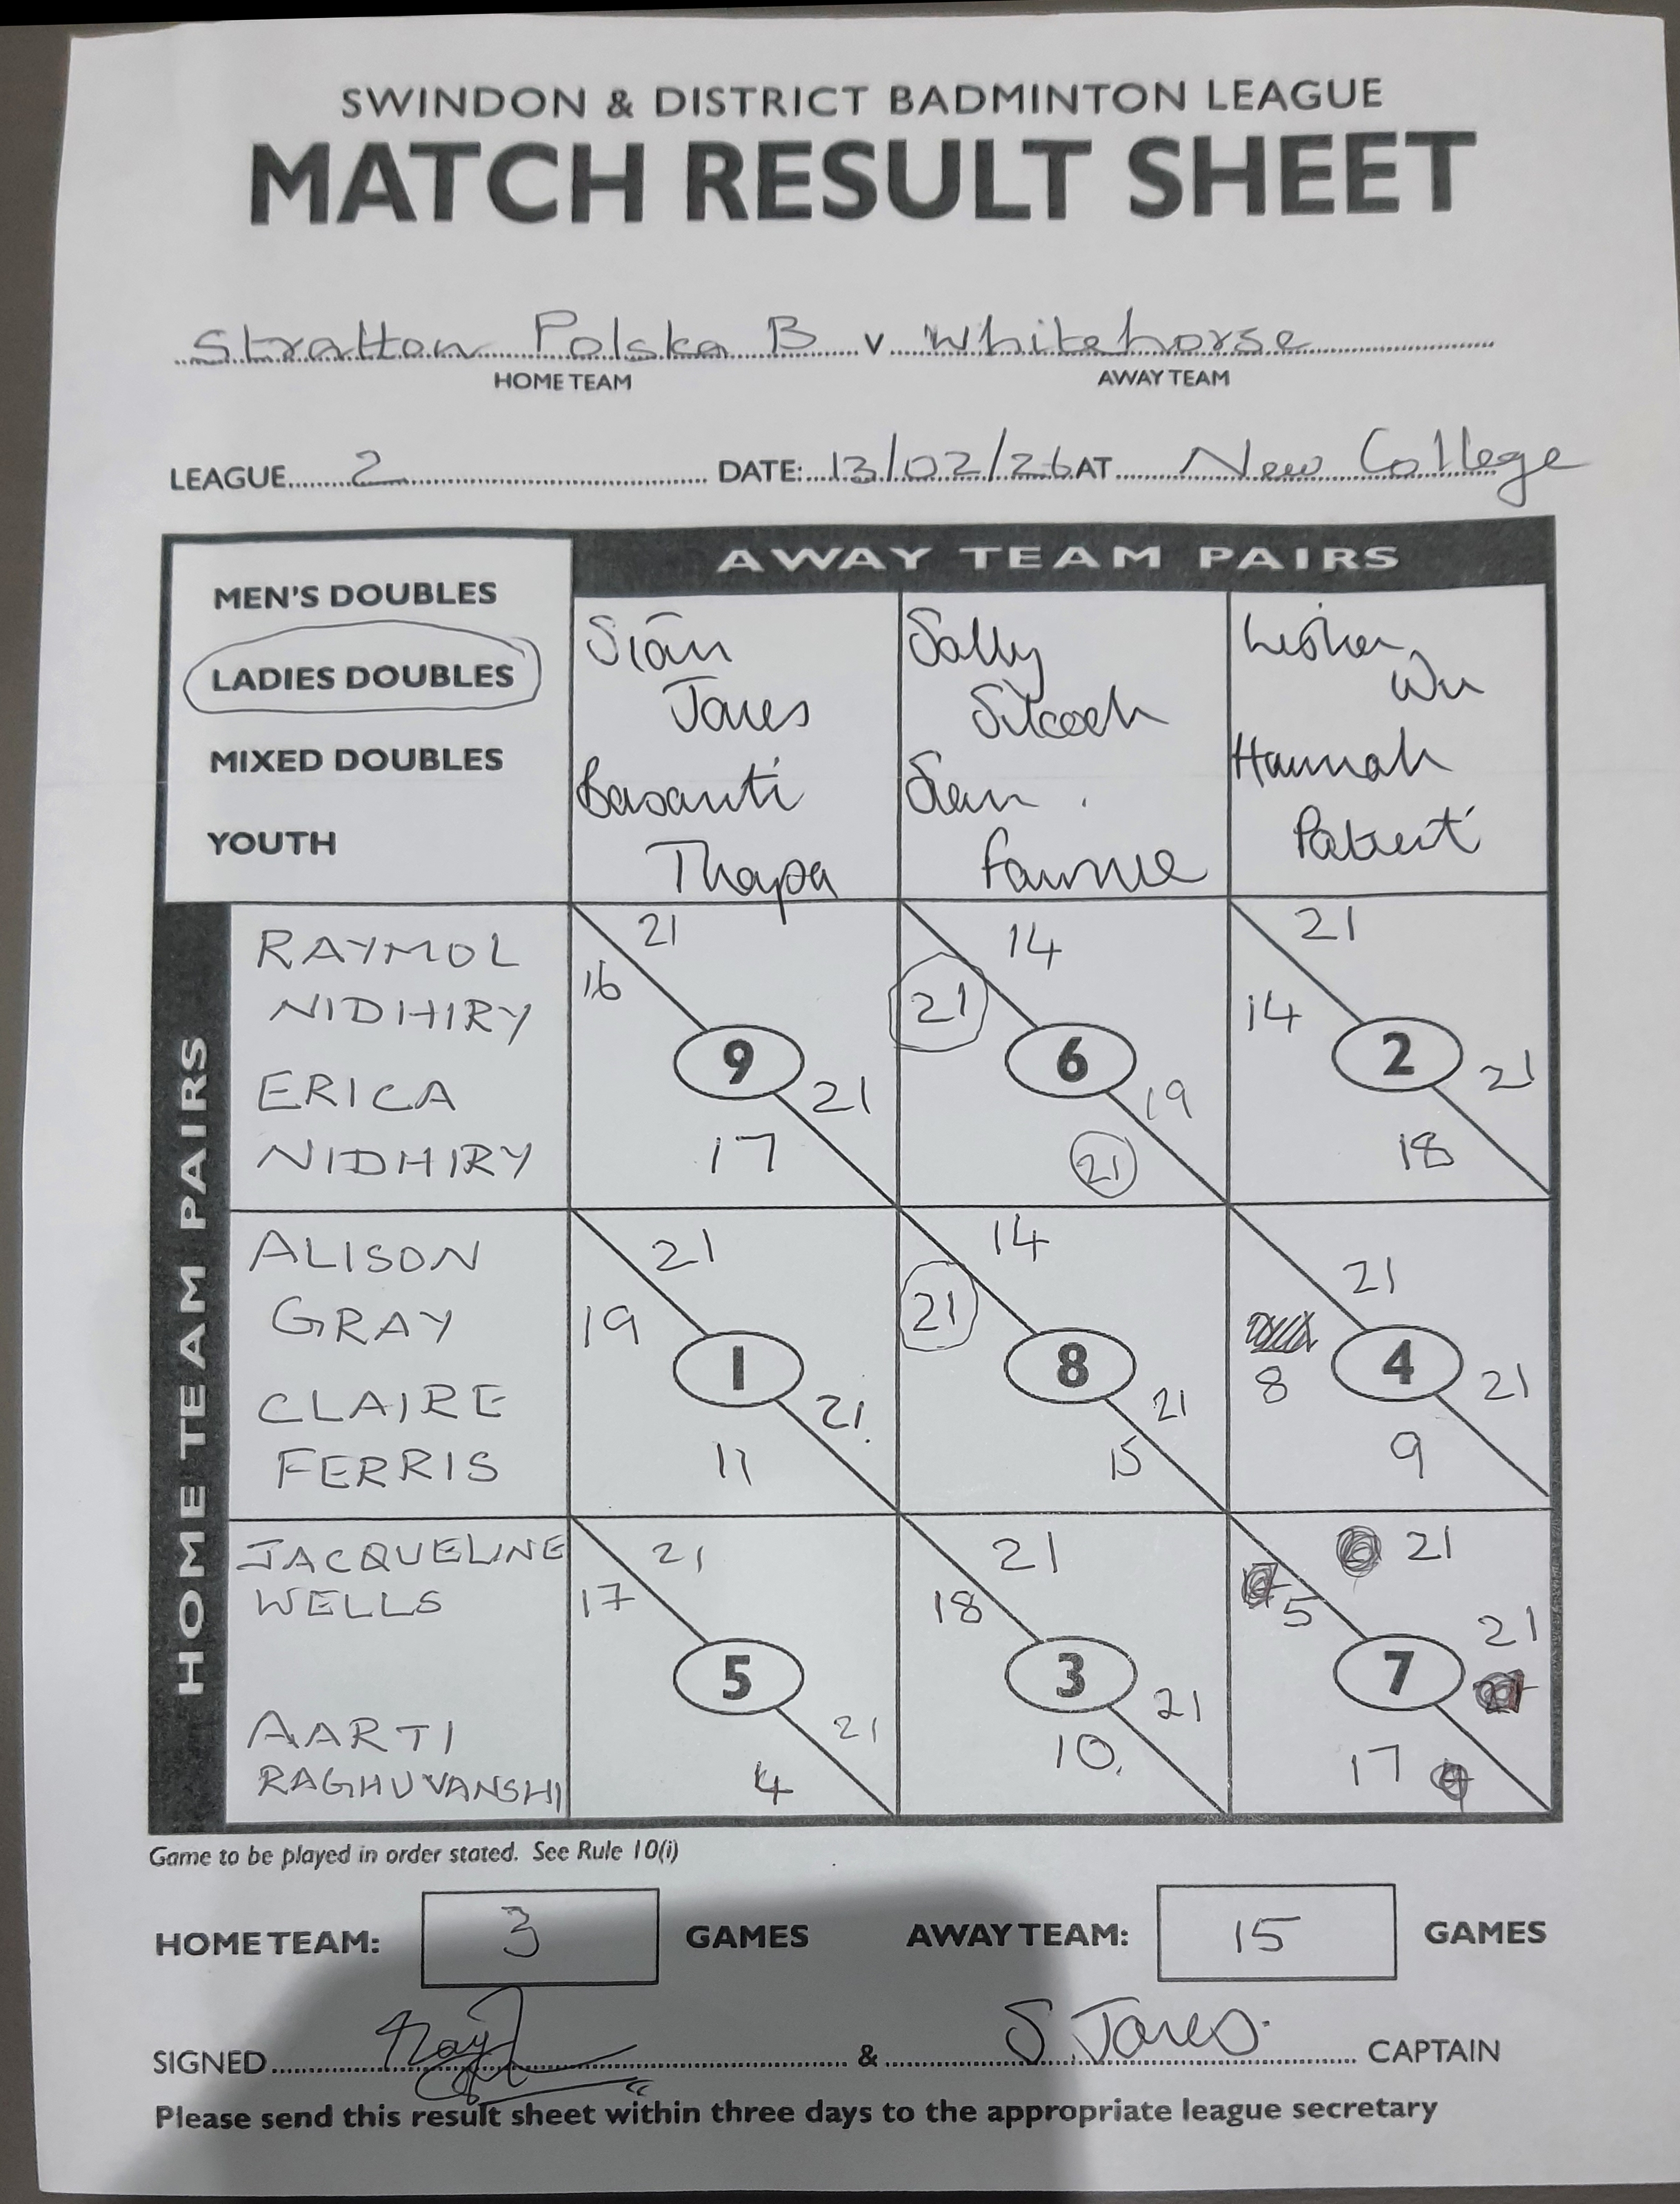 SWINDON & DISTRICT BADMINTON LEAGUE
MATCH RESULT SHEET
Stratton Polska B v Whitehorse
HOME TEAM AWAY TEAM
LEAGUE 2 DATE: 13/02/26 AT New College
AWAY TEAM PAIRS
MEN'S DOUBLES
LADIES DOUBLES
MIXED DOUBLES
YOUTH
Siân
Jones
Basanti
Thapa
Sally
Silcock
Sian
Wu
Hannah
HOME TEAM PAIRS
RAYMOL
NIDHIRY
ERICA
NIDHIRY
21
16
9
21
17
14
21
6
19
21
21
14
2
21
18
ALISON
GRAY
CLAIRE
FERRIS
21
19
1
21
11
14
21
8
21
15
21
8
4
21
9
JACQUELINE
WELLS
AARTI
RAGHUVANSHI
21
17
5
21
4
21
18
3
21
10
21
5
7
21
17
Game to be played in order stated. See Rule 10(i)
HOME TEAM: 3 GAMES AWAY TEAM: 15 GAMES
SIGNED & S. Jones CAPTAIN
Please send this result sheet within three days to the appropriate league secretary